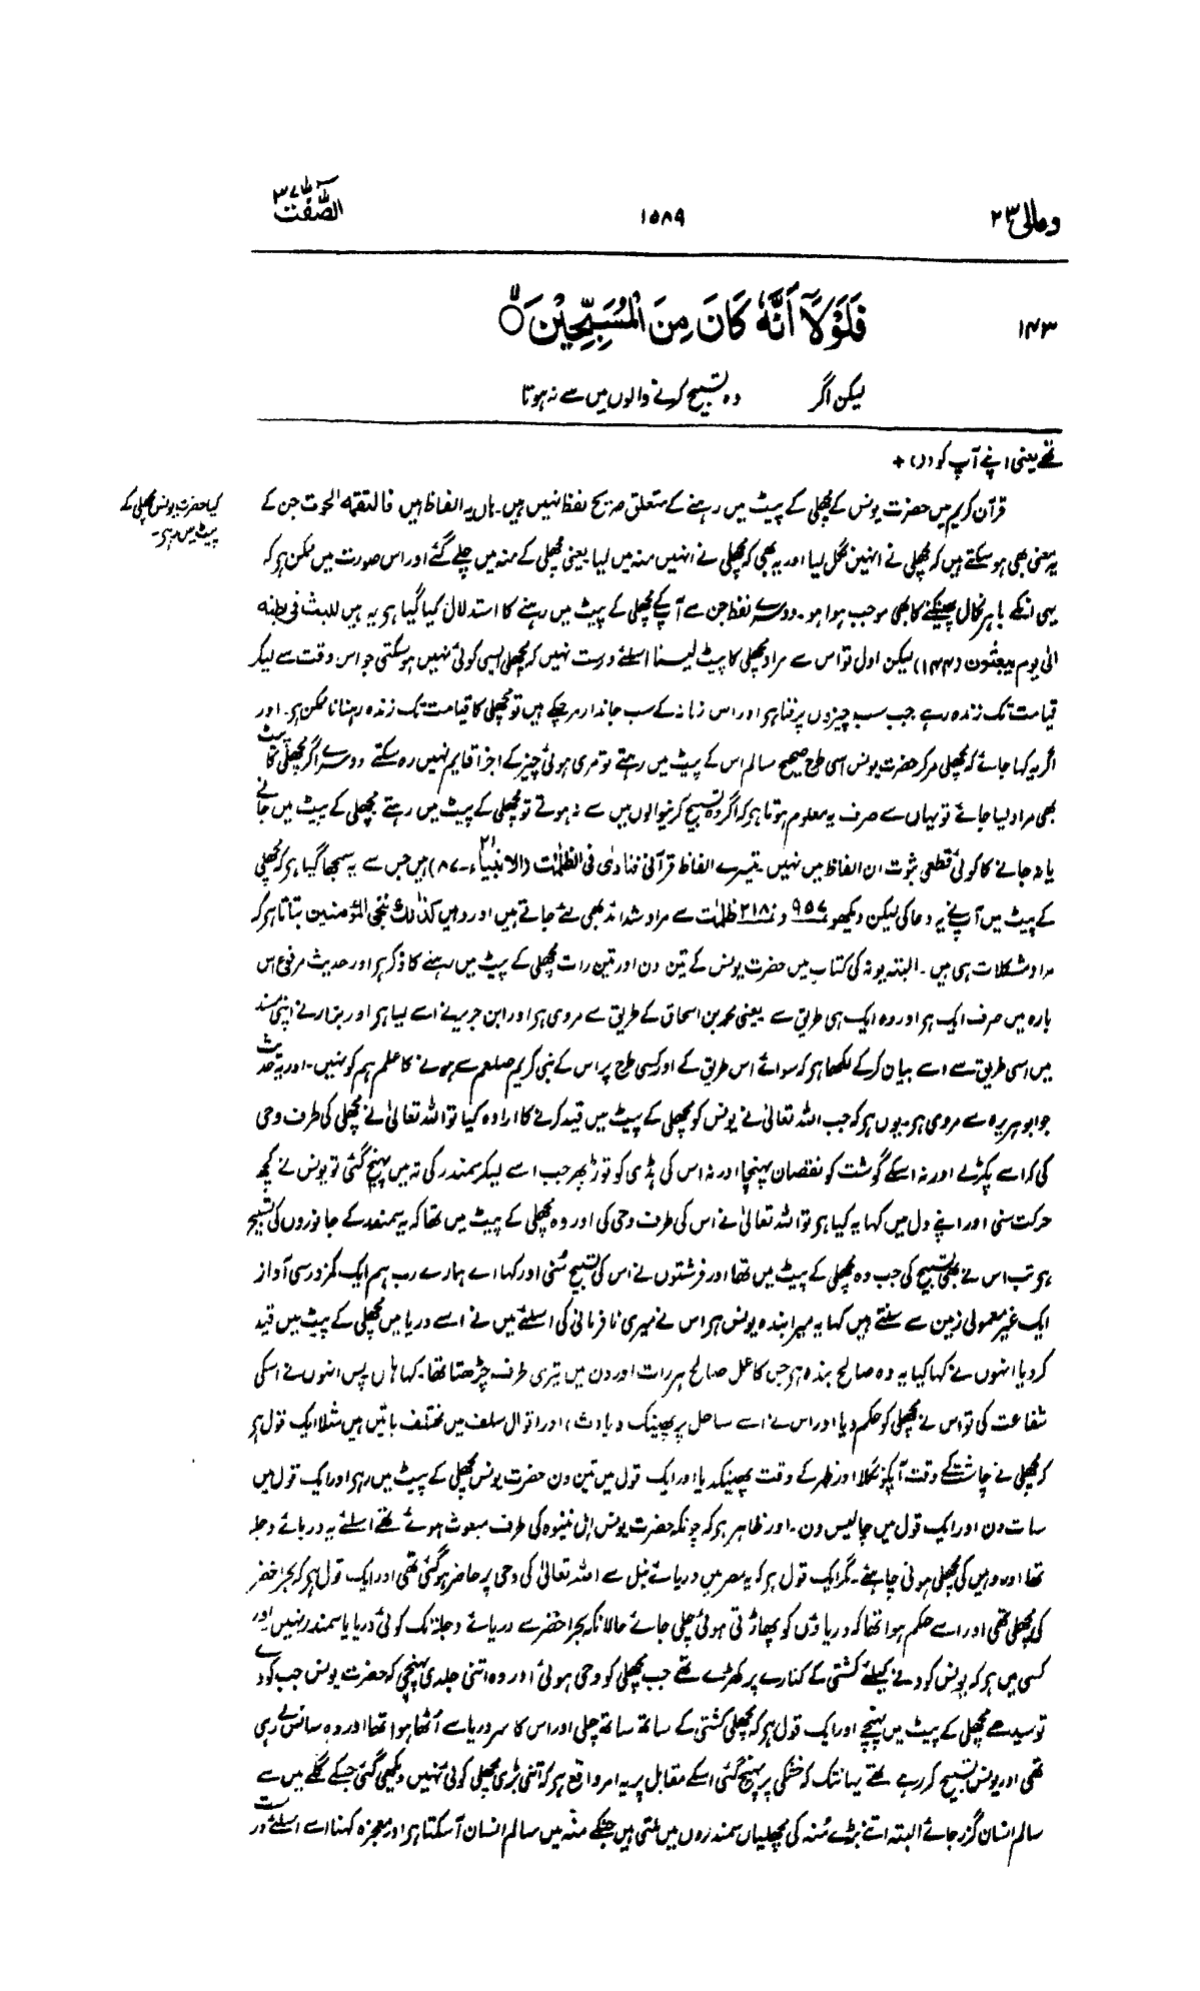 ومالی ۲۳
۱۵۸۹
الصّٰفّٰت ۳۷
۱۴۳
فَلَوْلَآ اَنَّهٗ كَانَ مِنَ الْمُسَبِّحِيْنَ ۝
لیکن اگر وہ تسبیح کرنے والوں میں سے نہ ہوتا
تھے یعنی اپنے آپ کو (ر) +
کیا حضرت یونس مچھلی کے
پیٹ میں رہے۔
قرآن کریم میں حضرت یونس کے مچھلی کے پیٹ میں رہنے کے متعلق صریح لفظ نہیں ہیں۔ ہاں یہ الفاظ ہیں فالتقمہ الحوت جن کے
یہ معنی بھی ہو سکتے ہیں کہ مچھلی نے انہیں نگل لیا اور یہ بھی کہ مچھلی نے انہیں منہ میں لیا یعنی مچھلی کے منہ میں چلے گئے اور اس صورت میں ممکن ہو کہ
یہی انکے باہر نکال پھینکنے کا بھی موجب ہوا ہو۔ دوسرے لفظ جن سے آپ کے مچھلی کے پیٹ میں رہنے کا استدلال کیا گیا ہو یہ ہیں للبث فی بطنہ
الی یوم یبعثون (۱۴۴) لیکن اول تو اس سے مراد مچھلی کا پیٹ لینا اسلئے درست نہیں کہ مچھلی ایسی کوئی نہیں ہو سکتی جو اس وقت سے لیکر
قیامت تک زندہ رہے جب سب چیزوں پر فنا ہو اور اس زمانہ کے سب جاندار مر چکے ہیں تو مچھلی کا قیامت تک زندہ رہنا ناممکن ہو۔ اور
اگر یہ کہا جائے کہ مچھلی مر کر حضرت یونس اسی طرح صحیح سالم اس کے پیٹ میں رہتے تو مری ہوئی چیز کے اجزا قایم نہیں رہ سکتے دوسرے اگر مچھلی کا پیٹ
بھی مراد لیا جائے تو یہاں سے صرف یہ معلوم ہوتا ہو کہ اگر وہ تسبیح کرنیوالوں میں سے نہ ہوتے تو مچھلی کے پیٹ میں رہتے مچھلی کے پیٹ میں جانے
یا نہ جانے کا کوئی قطعی ثبوت ان الفاظ میں نہیں۔ تیسرے الفاظ قرآنی فنادٰی فی الظلمٰت (الانبیاء۲۱۔ ۸۷) ہیں جس سے یہ سمجھا گیا ہو کہ مچھلی
کے پیٹ میں آپنے یہ دعا کی لیکن دیکھو ۹۵۷ و ۲۱۸ ظلمٰت سے مراد شدائد بھی لئے جاتے ہیں اور وہیں کذٰلک ننجی المؤمنین بتاتا ہو کہ
مراد مشکلات ہی ہیں۔ البتہ یونہ کی کتاب میں حضرت یونس کے تین دن اور تین رات مچھلی کے پیٹ میں رہنے کا ذکر ہو اور حدیث مرفوع اس
بارہ میں صرف ایک ہو اور وہ ایک ہی طریق سے یعنی محمد بن اسحاق کے طریق سے مروی ہو اور ابن جریر نے اسے لیا ہو اور بزار نے اپنی مسند
میں اسی طریق سے اسے بیان کر کے لکھا ہو کہ سوائے اس طریق کے اور کسی طرح پر اس کے نبی کریم صلعم سے ہونے کا علم ہم کو نہیں۔ اور یہ حدیث
جو ابو ہریرہ سے مروی ہو۔ یوں ہو کہ جب اللہ تعالیٰ نے یونس کو مچھلی کے پیٹ میں قید کرنے کا ارادہ کیا تو اللہ تعالیٰ نے مچھلی کی طرف وحی
کی کہ اسے پکڑ لے اور نہ اسکے گوشت کو نقصان پہنچا اور نہ اس کی ہڈی کو توڑ پھر جب اسے لیکر سمندر کی تہ میں پہنچ گئی تو یونس نے کچھ
حرکت سنی اور اپنے دل میں کہا یہ کیا ہو تو اللہ تعالیٰ نے اس کی طرف وحی کی اور وہ مچھلی کے پیٹ میں تھا کہ یہ سمندر کے جانوروں کی تسبیح
ہو تب اس نے بھی تسبیح کی جب وہ مچھلی کے پیٹ میں تھا اور فرشتوں نے اس کی تسبیح سُنی اور کہا اے ہمارے رب ہم ایک کمزور سی آواز
ایک غیر معمولی زمین سے سنتے ہیں کہا یہ میرا بندہ یونس ہو اس نے میری نافرمانی کی اسلئے میں نے اسے دریا میں مچھلی کے پیٹ میں قید
کر دیا انہوں نے کہا کیا یہ وہ صالح بندہ ہو جس کا عمل صالح ہر رات اور دن میں تیری طرف چڑھتا تھا۔ کہا ہاں پس انہوں نے اسکی
شفاعت کی تو اس نے مچھلی کو حکم دیا اور اس نے اسے ساحل پر پھینک دیا (ث) اور اقوال سلف میں مختلف باتیں ہیں مثلا ایک قول ہو
کہ مچھلی نے چاشت کے وقت آپکو نگلا اور ظہر کے وقت پھینک دیا اور ایک قول میں تین دن حضرت یونس مچھلی کے پیٹ میں رہو اور ایک قول میں
سات دن اور ایک قول میں چالیس دن۔ اور ظاہر ہو کہ چونکہ حضرت یونس اہل نینوہ کی طرف مبعوث ہوئے تھے اسلئے یہ دریائے دجلہ
تھا اور وہیں کی مچھلی ہونی چاہئے۔ مگر ایک قول ہو کہ یہ مصر میں دریائے نیل سے اللہ تعالیٰ کی وحی پر حاضر ہو گئی تھی اور ایک قول ہو کہ بحر اخضر
کی مچھلی تھی اور اسے حکم ہوا تھا کہ دریاؤں کو پھاڑتی ہوئی چلی جائے حالانکہ بحر اخضر سے دریائے دجلہ تک کوئی دریا یا سمندر نہیں اور
کسی میں ہو کہ یونس کودنے کیلئے کشتی کے کنارے پر کھڑے تھے جب مچھلی کو وحی ہوئی اور وہ اتنی جلدی پہنچی کہ حضرت یونس جب کودے
تو سیدھے مچھلی کے پیٹ میں پہنچے اور ایک قول ہو کہ مچھلی کشتی کے ساتھ ساتھ چلی اور اس کا سر دریا سے اُٹھا ہوا تھا اور وہ سانس لے رہی
تھی اور یونس تسبیح کر رہے تھے یہانتک کہ خشکی پر پہنچ گئی اسکے مقابل پر یہ امر واقع ہو کہ اتنی بڑی مچھلی کوئی نہیں دیکھی گئی جسکے گلے میں سے
سالم انسان گزر جائے البتہ اتنے بڑے مُنہ کی مچھلیاں سمندروں میں ملتی ہیں جنکے منہ میں سالم انسان آ سکتا ہو اور معجزہ کہنا اسے اسلئے درست